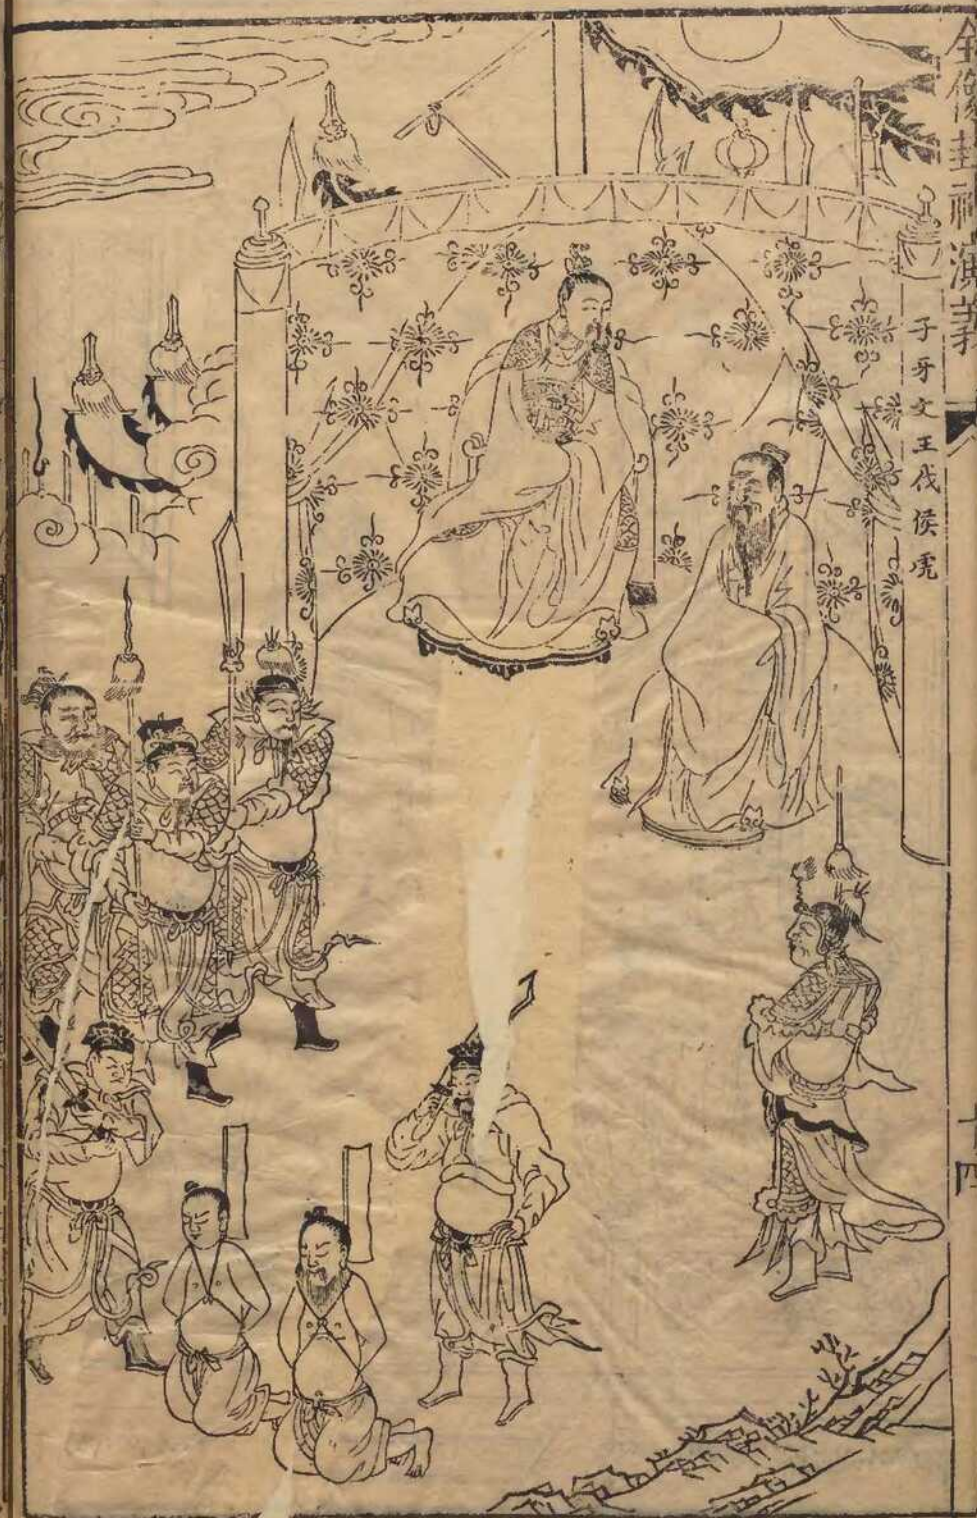 全像封神演義
子牙文王伐侯虎
十四